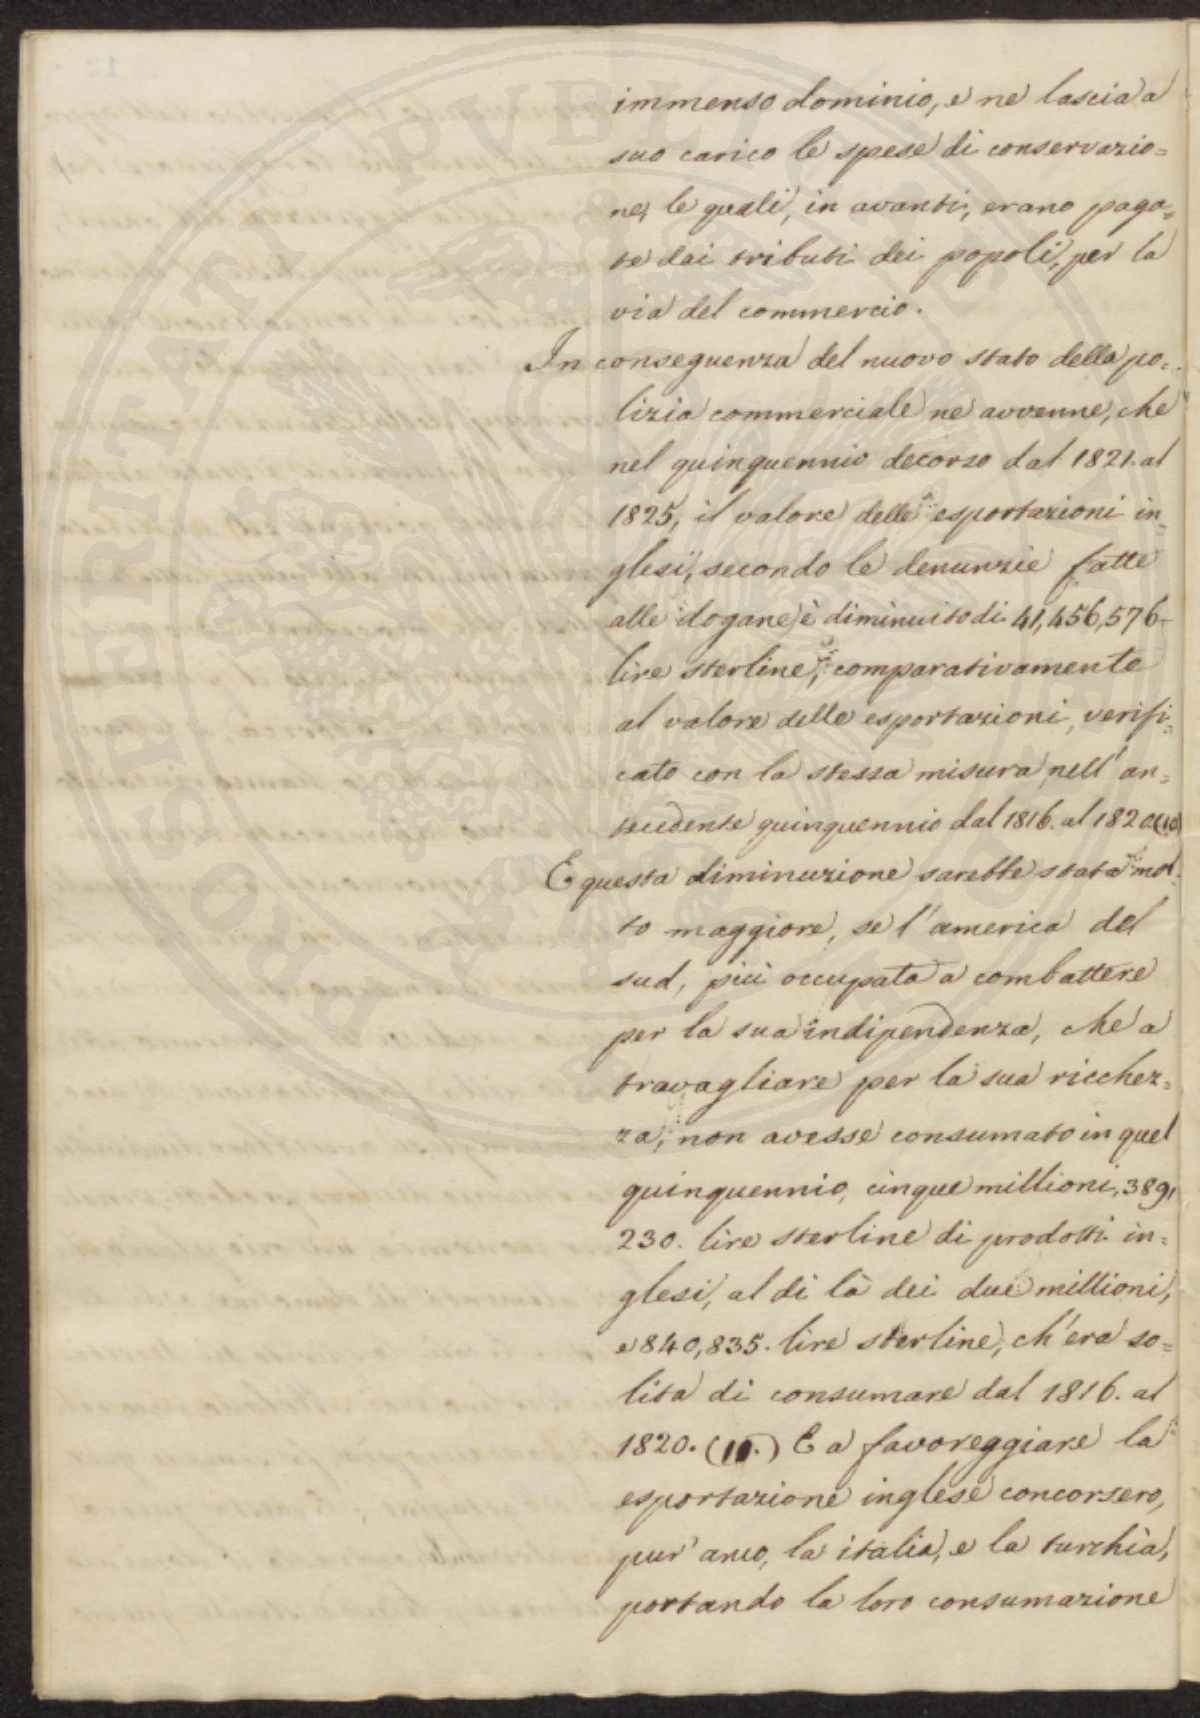 immenso dominio, e ne lascia a
suo carico le spese di conservazio=
ne, le quali, in avanti, erano paga=
te dai tributi dei popoli, per la
via del commercio.
In conseguenza del nuovo stato della po=
lizia commerciale ne avvenne, che
nel quinquennio decorso dal 1821. al
1825, il valore delle esportazioni in=
glesi, secondo le denunzie fatte
alle dogane è diminuito di 41,456,576
lire sterline, comparativamente
al valore delle esportazioni, verifi=
cato con la stessa misura, nell' an=
tecedente quinquennio dal 1816. al 1820.(10)
E questa diminuzione sarebbe stata mol=
to maggiore, se l'america del
sud, più occupata a combattere
per la sua indipendenza, che a
travagliare per la sua ricchez=
za, non avesse consumato in quel
quinquennio, cinque millioni, 389,
230. lire sterline di prodotti in=
glesi, al di là dei due millioni,
e 840,835. lire sterline, ch'era so=
lita di consumare dal 1816. al
1820. (11.) E a favoreggiare la
esportazione inglese concorsero,
pur' anco, la italia, e la turchia,
portando la loro consumazione
PROSPERITATI PVBLICAE